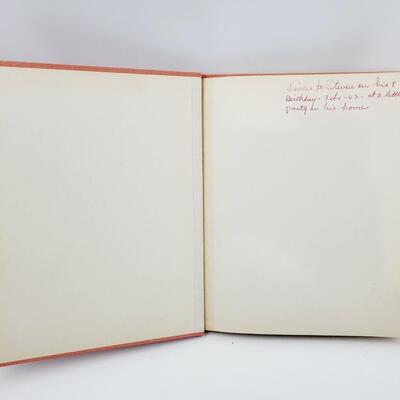 Given to Steven on his 8
Birthday - Feb - 63 - at a little
party in his home